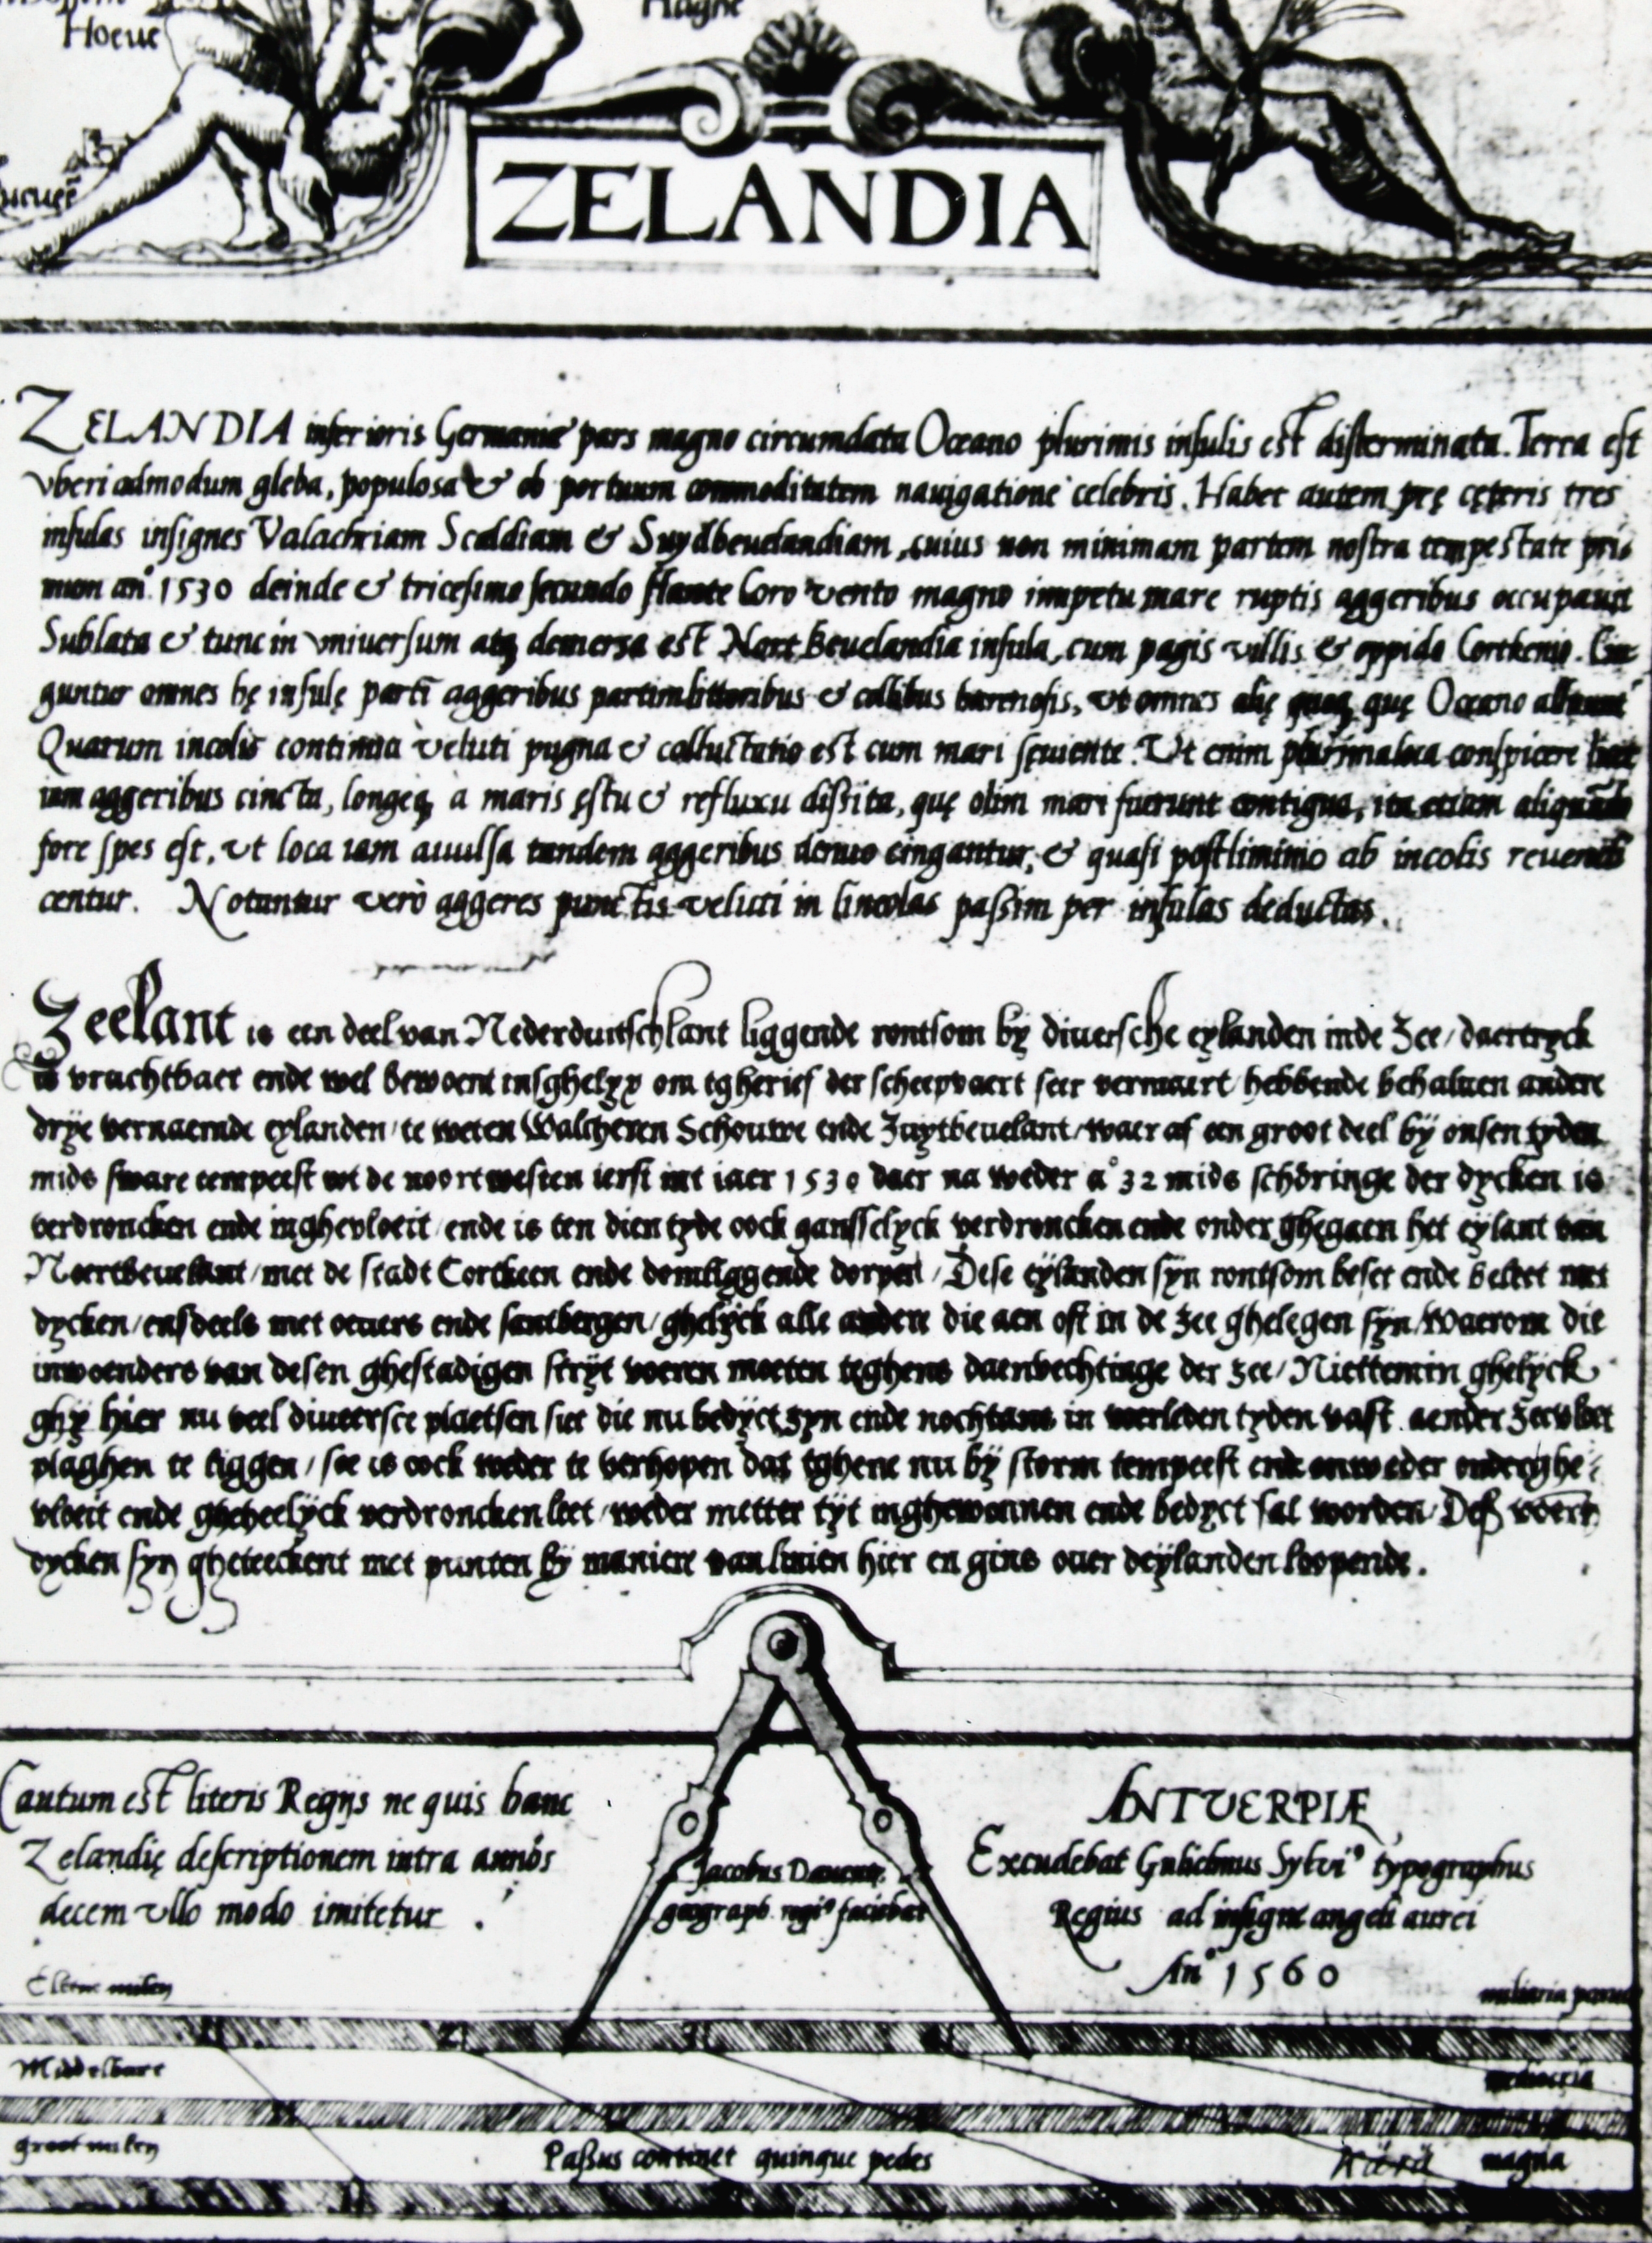 Hoeue
ZELANDIA
ZELANDIA inferioris Germaniæ pars magno circumdata Oceano plurimis insulis est disterminata. Terra est
vberi admodum gleba, populosa & ob portuum commoditatem nauigatione celebris. Habet autem pre ceteris tres
insulas insignes Valachriam Scaldiam & Suydbeuelandiam, cuius non minimam partem nostra tempestate pri-
mum an° 1530 deinde & tricesimo secundo flante Coro vento magno impetu mare ruptis aggeribus occupauit
Sublata & tunc in vniuersum atq demersa est Nort Beuelandia insula, cum pagis villis & oppido Cortkenio. Cin-
guntur omnes hę insulę partī aggeribus partim littoribus & collibus harenosis, vt omnes alię quoq, quę Oceano
Quarum incolis continua veluti pugna & colluctatio est cum mari sęuiente. Vt enim plurima loca conspicere licet
iam aggeribus cincta, longeq à maris ęstu & refluxu dissita, quę olim mari fuerunt contigua, ita etiam aliquādo
fore spes est, vt loca iam auulsa tandem aggeribus denuo cingantur, & quasi postliminio ab incolis reuendi
centur. Notantur verò aggeres punctis veluti in lineolas passim per insulas deductas.
Zeelant is een deel van Nederduitschlant liggende rontsom by diuersche eylanden inde Zee / daertryck
is vruchtbaer ende wel bewoent insghelyx om tgherief der scheepvaert seer vermaert / hebbende behaluen andere
drye vernaemde eylanden / te weten Walcheren Schouwe ende Zuytbeuelant / waer af een groot deel bÿ onsen tyden
mids sware tempeest wt de noortwesten ierst int iaer 1530 daer na weder a° 32 mids schöringe der dycken is
verdroncken ende inghevloeit / ende is ten dien tyde oock gansselyck verdroncken ende onder ghegaen het eylant van
Noertbeuelant / met de stadt Cortkeen ende domliggende dorpen / Dese eÿlanden syn rontsom beset ende beleet met
dycken / ensdeels met oeuers ende santbergen / ghelÿck alle andere die aen oft in de zee ghelegen syn / Waerom die
inwoenders van desen ghestadigen strÿt voeren moeten teghens daenvechtinge der zee / Niettemin ghelyck
ghÿ hier nu veel diueersce plaetsen siet die nu bedÿct zyn ende nochtans in voerleden tyden vast aender Zeevloet
plaghen te liggen / soe is oock weder te verhopen dat tghene nu bÿ storm tempeest ende onweder onderghe-
vloeit ende gheheelÿck verdroncken leet / weder metter tÿt inghewonnen ende bedyct sal worden / Des voers
dycken syn gheteeckent met punten bÿ maniere van linien hier en gins ouer deÿlanden loopende.
Cautum est literis Regijs ne quis hanc
Zelandię descriptionem intra annos
decem vllo modo imitetur.
Jacobus Dauentr.
geograph. regi° faciebat
ANTVERPIÆ
Excudebat Gulielmus Sylvi° typographus
Regius ad insigne angeli aurei
An° 1560
Cleene milen
miliaria parua
Middelbare
mediocria
groot milen
Passus continet quinque pedes
magna